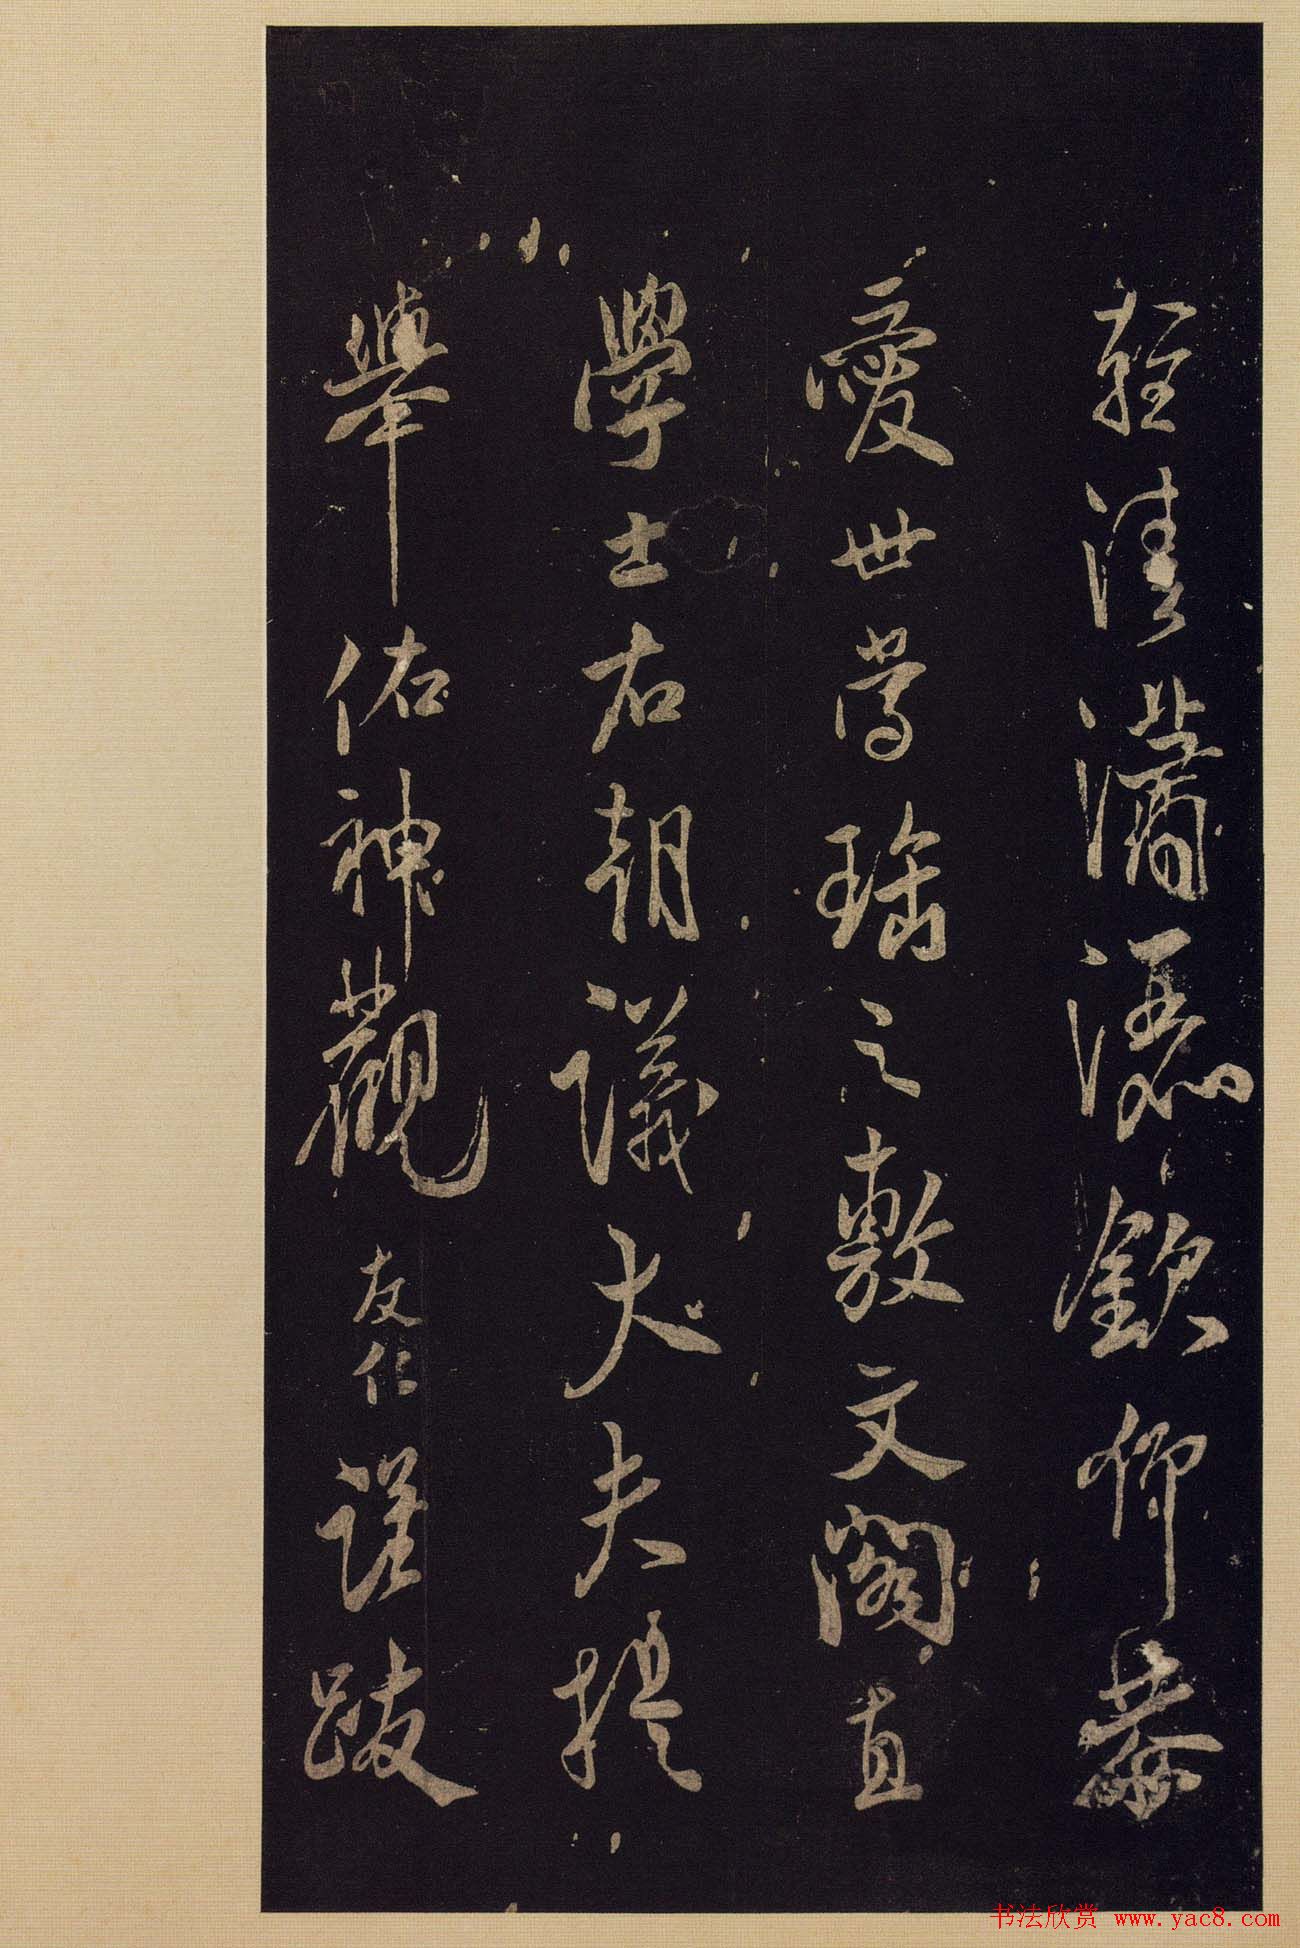 轻清潇洒钦仰恭
愛世薄瑤之敷文閣直
學士右朝議大夫提
舉佑神觀友仁謹跋
书法欣赏 www.yac8.com